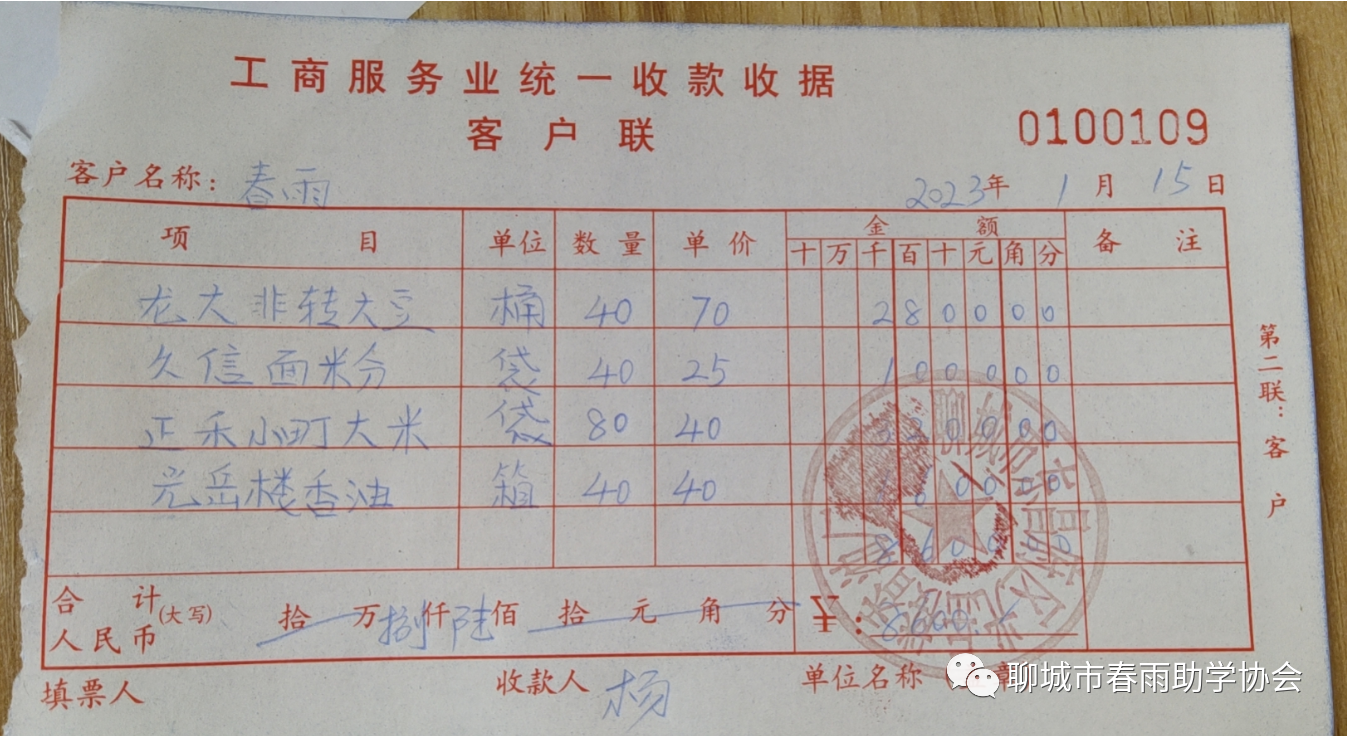 工商服务业统一收款收据
客户联
0100109
客户名称：春雨
2023年 1月 15日
项目 单位 数量 单价 金额 备注
十 万 千 百 十 元 角 分
龙大非转大豆 桶 40 70 2 8 0 0 0 0
久信面粉 袋 40 25 1 0 0 0 0 0
正禾小町大米 袋 80 40 3 2 0 0 0 0
光岳楼香油 箱 40 40 1 6 0 0 0 0
8 6 0 0 0 0
合计(大写) 拾 万 捌仟 陆佰 拾 元 角 分 ¥：8600
人民币
填票人 收款人 杨 单位名称
第二联：客户
聊城市春雨助学协会